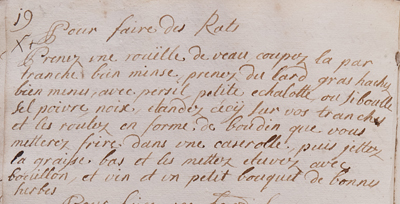 19
X+ Pour faire des Rats
Prenez une roüille de veau coupez la par
tranche bien minse, prenez du lard gras hachez
bien menus, avec persil, petite echalotte, ou siboulle
sel poivre noix, étandez cecy sur vos tranches
et les roulez en forme de boudin que vous
metterez frire dans une casserolle, puis jettez
la graisse bas et les mettez etuvez avec
bouillon, et vin et un petit bouquet de bonnes
herbes